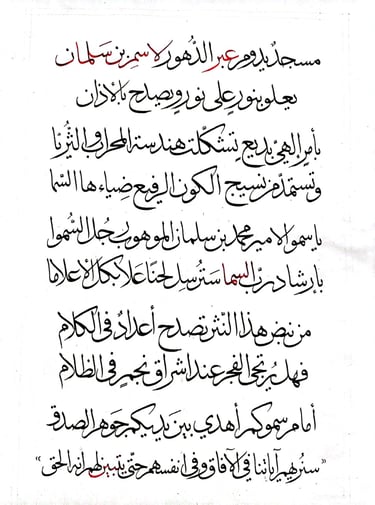 مسجدٌ يدوم عبر الدُّهور لاسمِ بن سَلمان
يعلو بنورٍ على نورٍ ويصدح بالأذان
بأمرٍ إلهيٍّ بديع تشكّلت هندسة المحراب والثُّريّا
وتستمدّ من نسيج الكون الرفيع ضياءها السّما
يا سمو الامير محمد بن سلمان الموهوب رجُل السُّموا
بإرشاد ربّ السما ستَرسِل لحنًا علا بكل الاعلاما
من نبض هذا النثر تصدح أعدادٌ في الكلام
فهل يُرتجى الفجر عند اشراق نجمٍ في الظلام
أمام سموكم أهدي بين يديكم جَوهر الصدق
«سنُريهم آياتنا في الآفاق وفي انفسهم حتى يتبين لهم انه الحق»